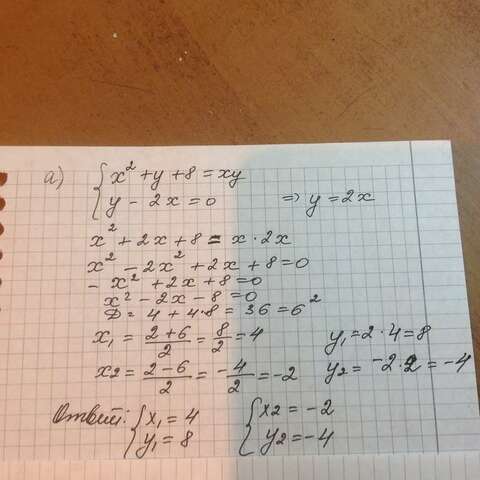 а) { x² + y + 8 = xy
y - 2x = 0 => y = 2x
x² + 2x + 8 = x · 2x
x² - 2x² + 2x + 8 = 0
- x² + 2x + 8 = 0
x² - 2x - 8 = 0
D = 4 + 4·8 = 36 = 6²
x₁ = (2+6)/2 = 8/2 = 4 y₁ = 2 · 4 = 8
x₂ = (2-6)/2 = -4/2 = -2 y₂ = -2·2 = -4
Ответ: { x₁ = 4 { x₂ = -2
y₁ = 8 y₂ = -4